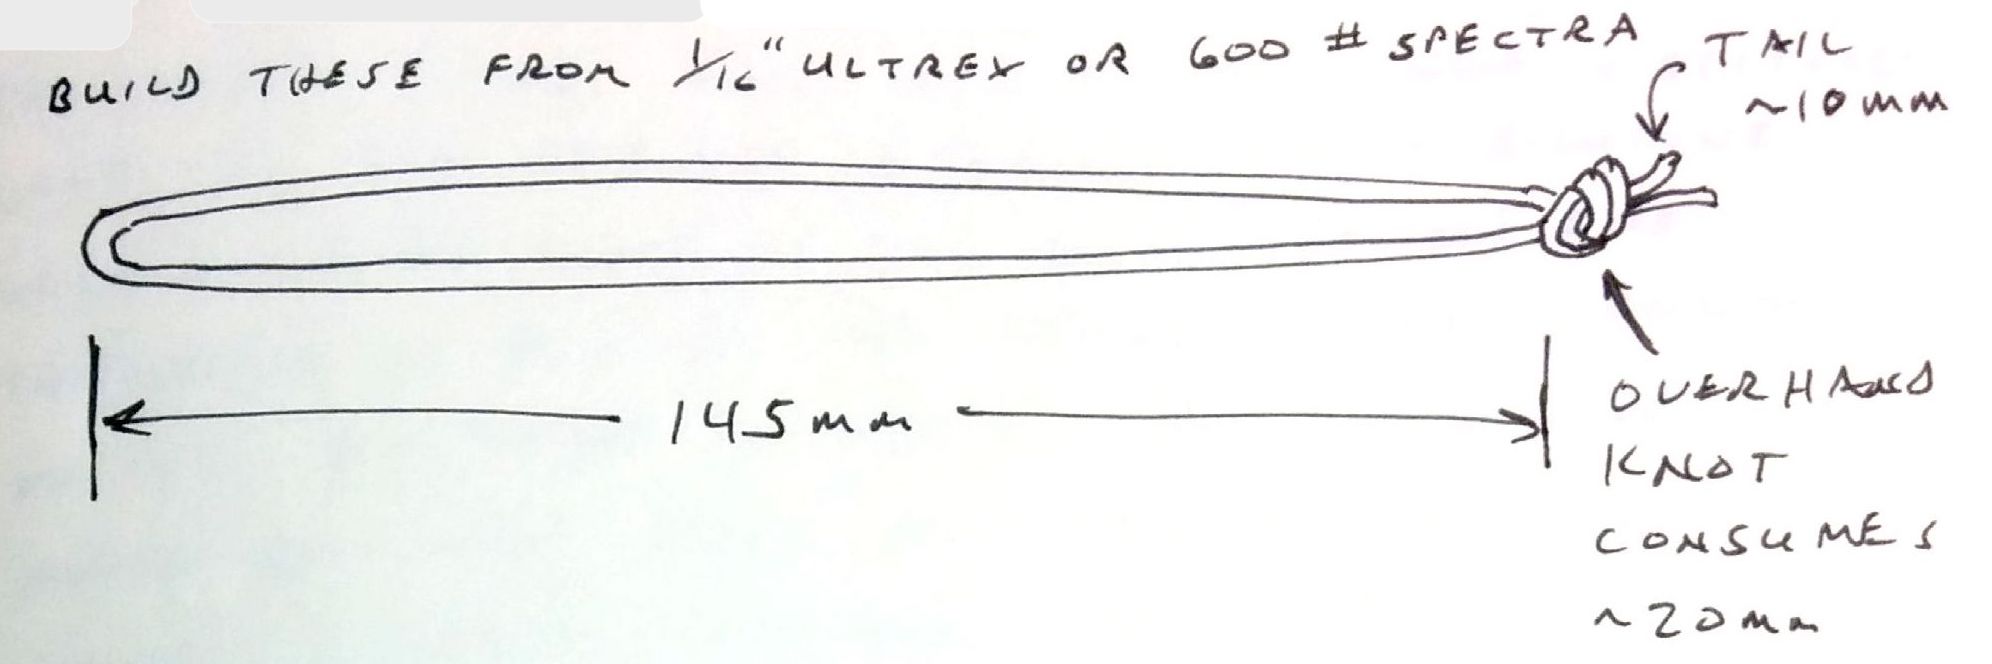 BUILD THESE FROM 1/16" ULTREX OR 600 # SPECTRA
TAIL
~10mm
145mm
OVERHAND
KNOT
CONSUMES
~20mm